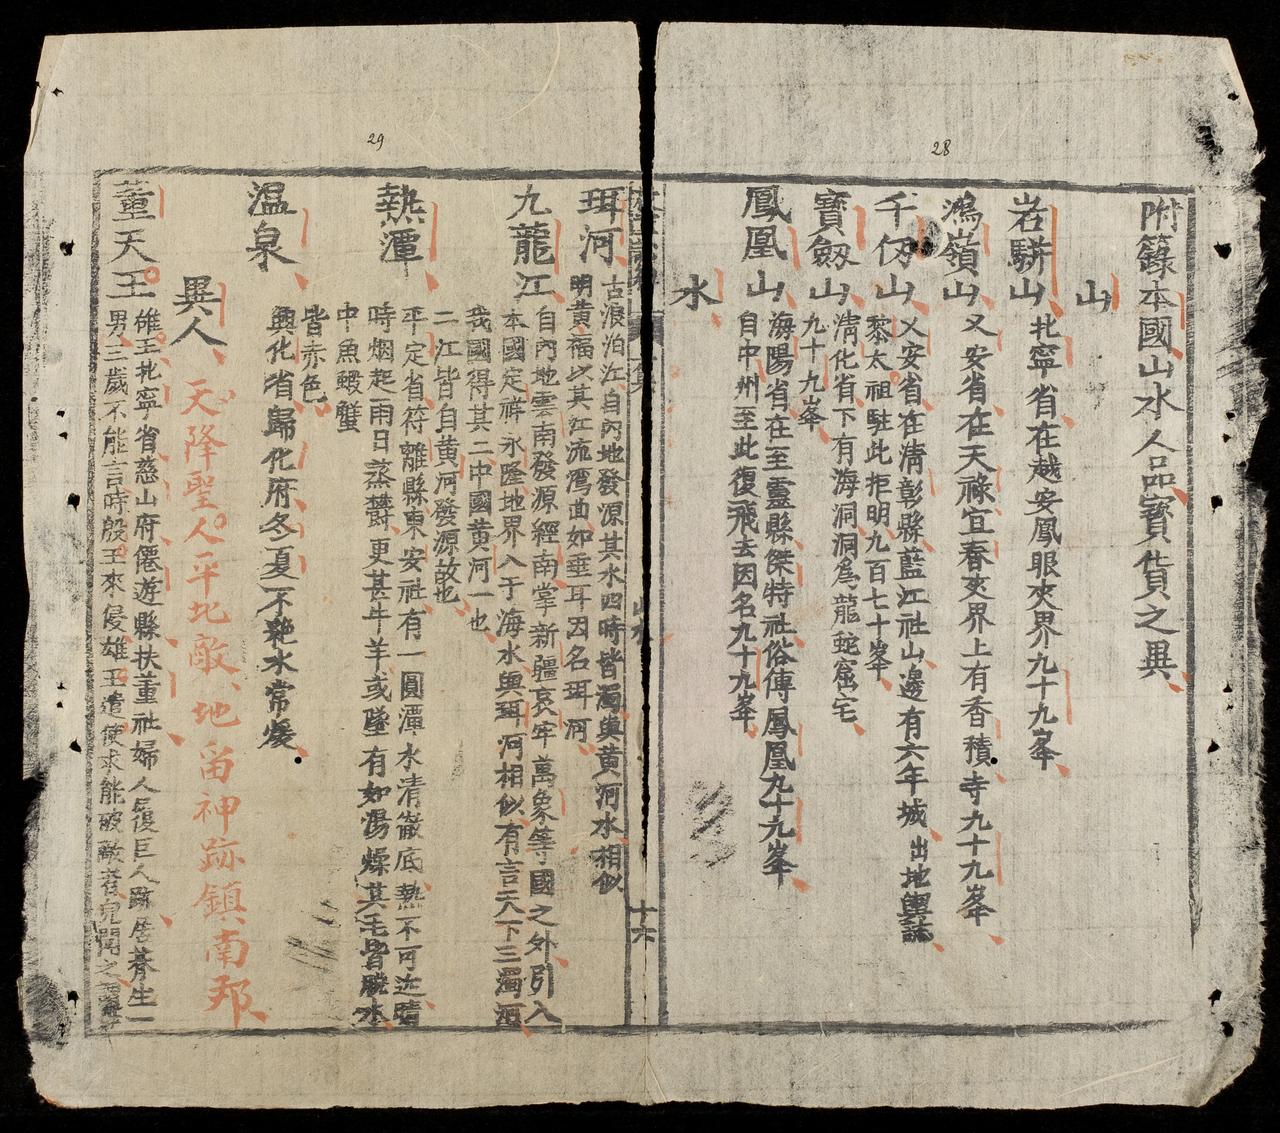 28
附錄本國山水人品寶貨之異
山
岩騈山 北寧省在越安鳳眼夾界九十九峯
鴻嶺山 乂安省在天祿宜春夾界上有香積寺九十九峯
千仞山 乂安省在清彰縣藍江社山邊有六年城出地輿誌
黎太祖駐此拒明九百七十峯
寶劔山 清化省下有海洞洞爲龍蛇窟宅
九十九峯
鳳凰山 海陽省在至靈縣傑特社俗傳鳳凰九十九峯
自中州至此復飛去因名九十九峯
水
山水
十六
29
珥河 古浪泊江自內地發源其水四時皆濁與黄河水相似
明黄福以其江流灣曲如垂耳因名珥河
九龍江 自內地雲南發源經南掌新疆哀牢萬象等國之外引入
本國定祥永隆地界入于海水與珥河相似有言天下三濁河
我國得其二中國黄河一也
二江皆自黄河發源故也
熱潭 平定省符離縣東安社有一圓潭水清徹底熱不可近晴
時烟起雨日蒸欝更甚牛羊或墜有如湯燥其毛骨脱水
中魚鰕蟹
皆赤色
温泉 興化省歸化府冬夏不絶水常煖
異人 天降聖人平北敵地留神跡鎮南邦
董天王 雄王北寧省慈山府僊遊縣扶董社婦人履巨人跡居養生一
男三歲不能言時殷王來侵雄王遣使求能破敵者兒聞之